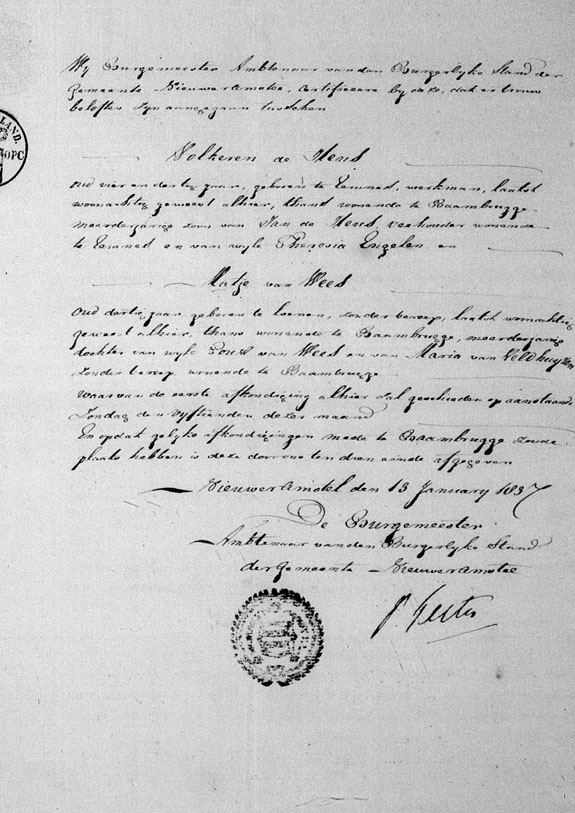 Wij Burgemeester Ambtenaar van den Burgerlyke Stand der
Gemeente Nieuwer Amstel, certificeere by deze, dat er trouw
beloften zyn aangegaan tusschen
Volkeren de Heus
oud vier en dertig jaar, geboren te Eemnes, werkman, laatst
woonachtig geweest alhier, thans wonende te Baambrugge
meerderjarige zoon van Jan de Heus, veehouder wonende
te Eemnes en van wyle Theresia Engelen en
Matje van Wees
oud dertig jaar geboren te Loenen, zonder beroep, laatst woonachtig
geweest alhier, thans wonende te Baambrugge, meerderjarige
dochter van wyle Goust van Wees en van Maria van Veldhuyzen
zonder beroep, wonende te Baambrugge
waarvan de eerste afkondiging alhier zal geschieden op aanstaande
Zondag den vyftienden dezer maand
En opdat gelyke afkondigingen mede te Baambrugge zoude
plaats hebben is deze door ons ten dien einde afgegeven
Nieuwer Amstel den 13 January 1837
De Burgemeester
Ambtenaar van den Burgerlyke Stand
der Gemeente Nieuwer Amstel
LAND.
OPC